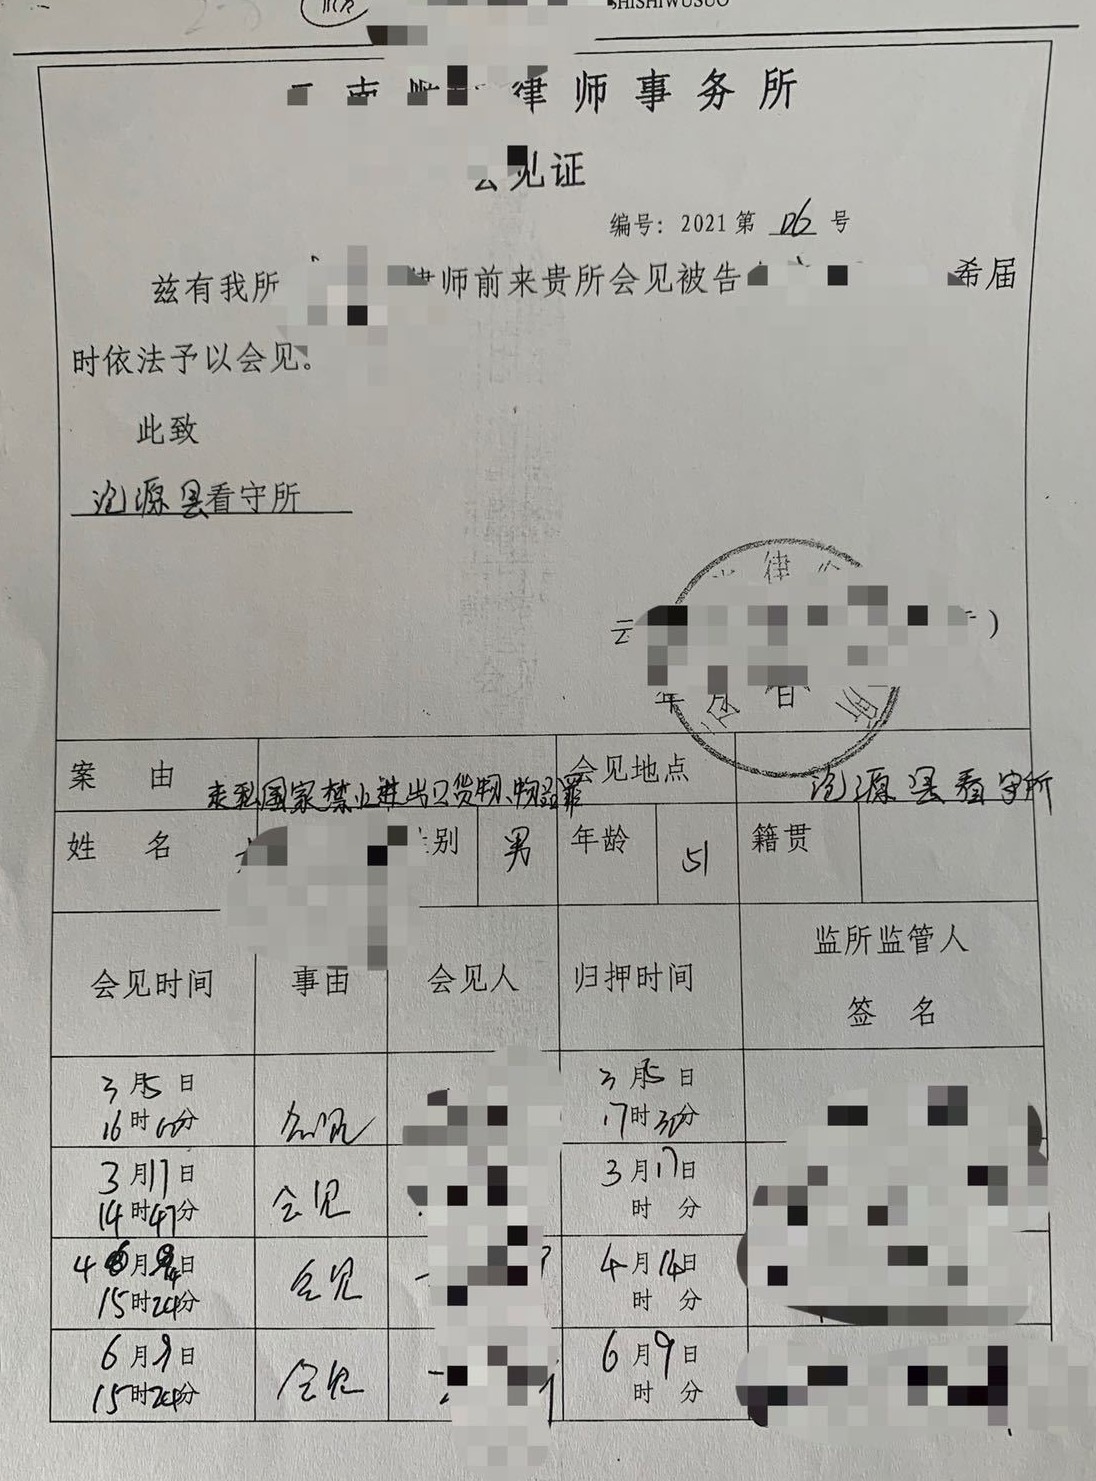 SHISHIWUSUO
南 律师事务所
会见证
编号：2021 第 06 号
兹有我所 律师前来贵所会见被告 希届
时依法予以会见。
此致
沧源县看守所
云 )
年 月 日
案由 走私国家禁止进出口货物、物品罪 会见地点 沧源县看守所
姓名 性别 男 年龄 51 籍贯
会见时间 事由 会见人 归押时间 监所监管人
签名
3月5日 会见 3月5日
16时00分 17时30分
3月17日 会见 3月17日
14时47分 时 分
4月14日 会见 4月14日
15时24分 时 分
6月9日 会见 6月9日
15时24分 时 分